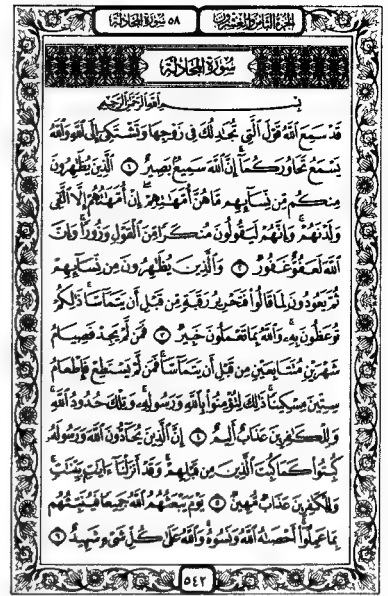 الجزء الثامن والعشرون ٥٨ سورة المجادلة
سورة المجادلة
بسم الله الرحمن الرحيم
قَدْ سَمِعَ اللَّهُ قَوْلَ الَّتِي تُجَادِلُكَ فِي زَوْجِهَا وَتَشْتَكِي إِلَى اللَّهِ وَاللَّهُ
يَسْمَعُ تَحَاوُرَكُمَا إِنَّ اللَّهَ سَمِيعٌ بَصِيرٌ ١ الَّذِينَ يُظَاهِرُونَ
مِنكُم مِّن نِّسَائِهِم مَّا هُنَّ أُمَّهَاتِهِمْ إِنْ أُمَّهَاتُهُمْ إِلَّا اللَّائِي
وَلَدْنَهُمْ وَإِنَّهُمْ لَيَقُولُونَ مُنكَرًا مِّنَ الْقَوْلِ وَزُورًا وَإِنَّ
اللَّهَ لَعَفُوٌّ غَفُورٌ ٢ وَالَّذِينَ يُظَاهِرُونَ مِن نِّسَائِهِمْ
ثُمَّ يَعُودُونَ لِمَا قَالُوا فَتَحْرِيرُ رَقَبَةٍ مِّن قَبْلِ أَن يَتَمَاسَّا ذَٰلِكُمْ
تُوعَظُونَ بِهِ وَاللَّهُ بِمَا تَعْمَلُونَ خَبِيرٌ ٣ فَمَن لَّمْ يَجِدْ فَصِيَامُ
شَهْرَيْنِ مُتَتَابِعَيْنِ مِن قَبْلِ أَن يَتَمَاسَّا فَمَن لَّمْ يَسْتَطِعْ فَإِطْعَامُ
سِتِّينَ مِسْكِينًا ذَٰلِكَ لِتُؤْمِنُوا بِاللَّهِ وَرَسُولِهِ وَتِلْكَ حُدُودُ اللَّهِ
وَلِلْكَافِرِينَ عَذَابٌ أَلِيمٌ ٤ إِنَّ الَّذِينَ يُحَادُّونَ اللَّهَ وَرَسُولَهُ
كُبِتُوا كَمَا كُبِتَ الَّذِينَ مِن قَبْلِهِمْ وَقَدْ أَنزَلْنَا آيَاتٍ بَيِّنَاتٍ
وَلِلْكَافِرِينَ عَذَابٌ مُّهِينٌ ٥ يَوْمَ يَبْعَثُهُمُ اللَّهُ جَمِيعًا فَيُنَبِّئُهُم
بِمَا عَمِلُوا أَحْصَاهُ اللَّهُ وَنَسُوهُ وَاللَّهُ عَلَىٰ كُلِّ شَيْءٍ شَهِيدٌ ٦
٥٤٢